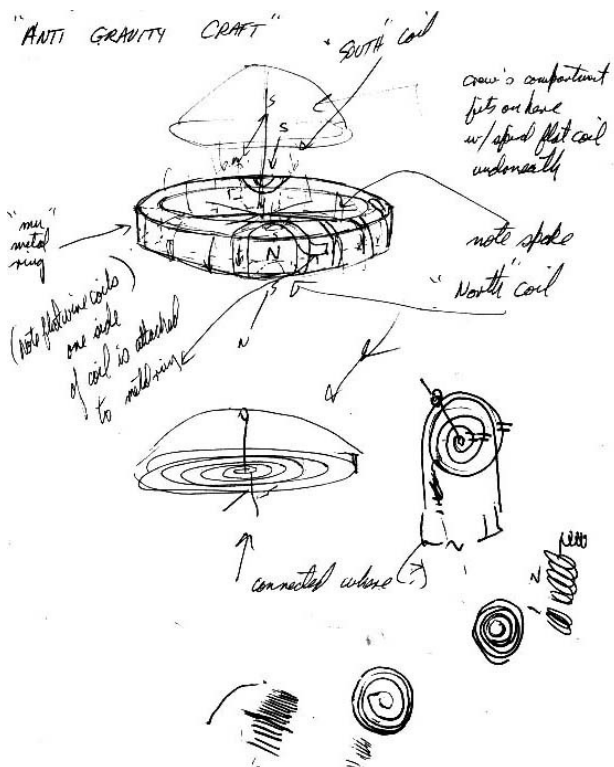 "ANTI GRAVITY CRAFT"
"SOUTH" coil
crew's compartment
fits on here
w/ spiral flat coil
underneath
S
S
"mu"
metal
ring
note spoke
N
"North" coil
S
N
(note flat wire coils)
one side
of coil is attached
to metal ring
connected where (?)
N
N